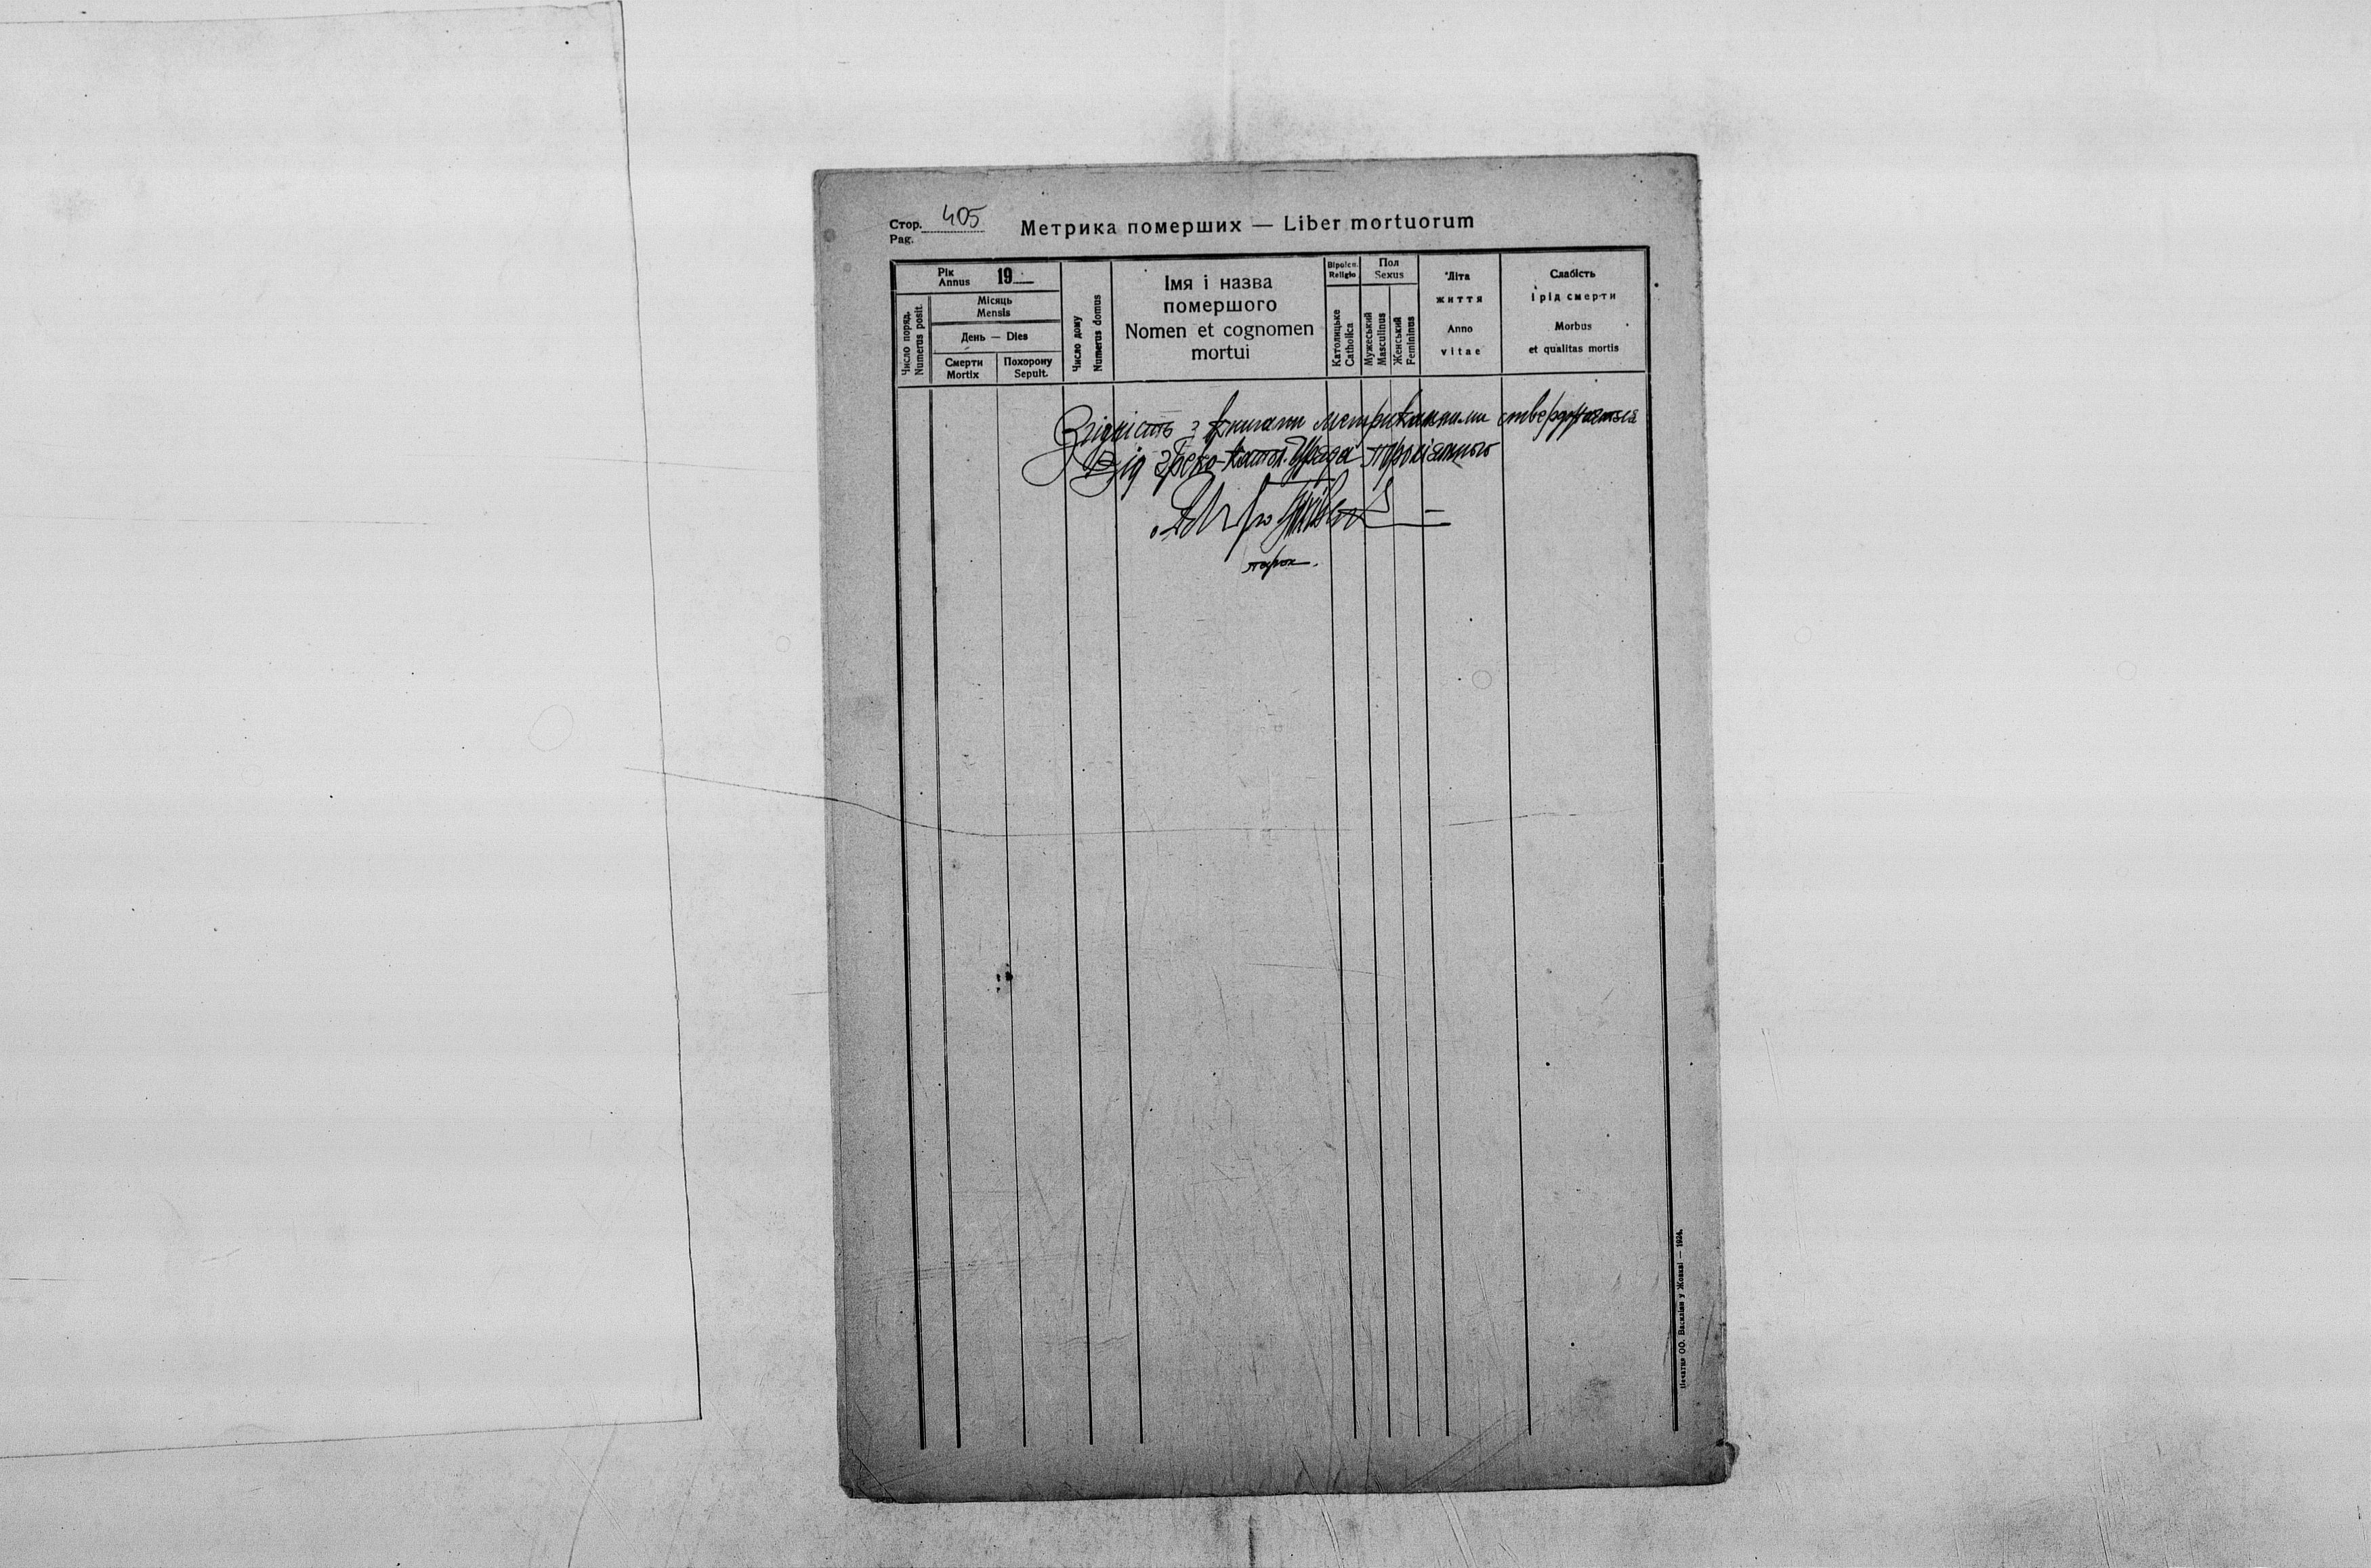 Стор. 405
Pag.
Метрика померших — Liber mortuorum
Рік
Annus 19
Число поряд.
Numerus posit.
Місяць
Mensis
День — Dies
Смерти
Mortix
Похорону
Sepult.
Число дому
Numerus domus
Імя і назва
помершого
Nomen et cognomen
mortui
Religio
Католицьке
Catholica
Пол
Sexus
Мужеський
Masculinus
Женський
Femininus
Літа
життя
Anno
vitae
Слабість
і рід смерти
Morbus
et qualitas mortis
Згідність з книгами метрикальними стверджається
Від греко-катол. Уряда парохіяльного
парох.
Печатня ОО. Василіян у Жовкві — 1924.